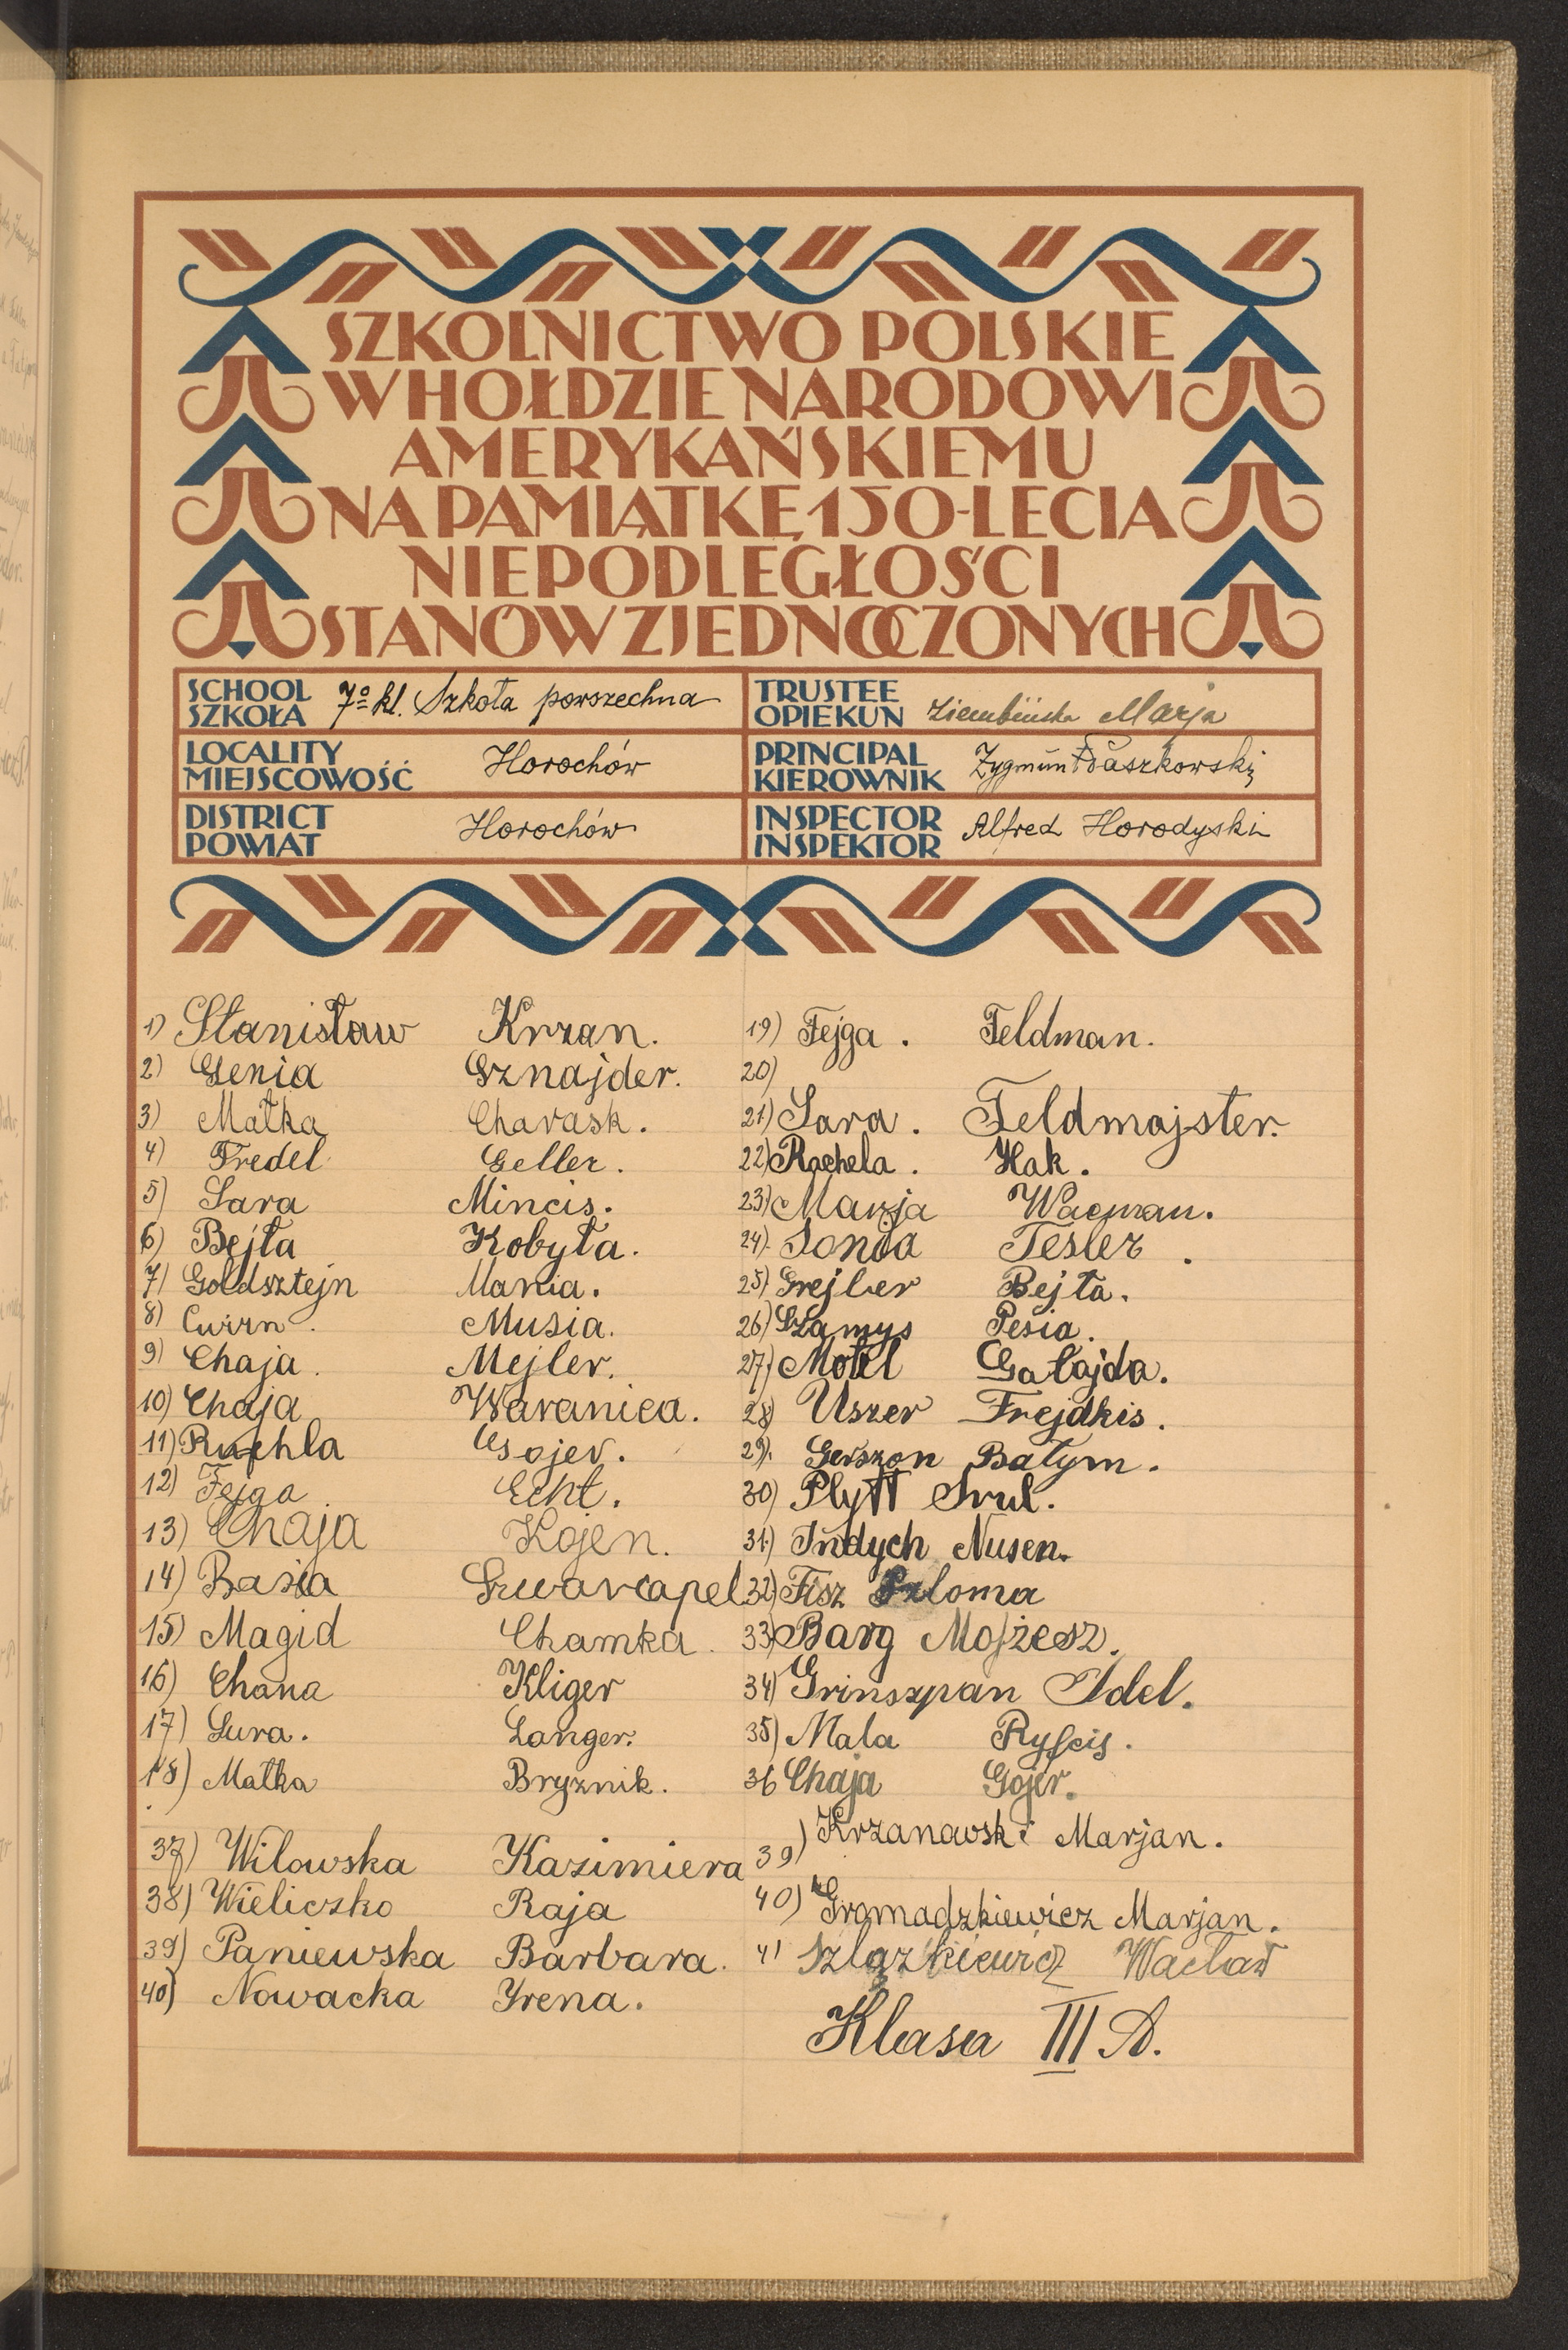 SZKOLNICTWO POLSKIE
W HOŁDZIE NARODOWI
AMERYKAŃSKIEMU
NA PAMIĄTKĘ 150-LECIA
NIEPODLEGŁOŚCI
STANÓW ZJEDNOCZONYCH
SCHOOL
SZKOŁA
7o kl. Szkoła powszechna
TRUSTEE
OPIEKUN
Ziembińska Marja
LOCALITY
MIEJSCOWOŚĆ
Horochów
PRINCIPAL
KIEROWNIK
Zygmunt Daszkowski
DISTRICT
POWIAT
Horochów
INSPECTOR
INSPEKTOR
Alfred Horodyski
1) Stanisław Krzan.
2) Genia Sznajder.
3) Małka Charask.
4) Fredel Geller.
5) Sara Mincis.
6) Bejła Kobyła.
7) Goldsztejn Mania.
8) Musia.
9) Chaja. Mejler.
10) Chaja Waranica.
11) Ruchla Gojer.
12) Fejga. Echt.
13) Chaja Kojen.
14) Basia Szwarcapel
15) Magid Chamka.
16) Chana Kliger
17) Sura. Langer.
18) Małka Bryznik.
37) Wilowska Kazimiera
38) Wieliczko Raja
39) Paniewska Barbara.
40) Nowacka Yrena.
19) Fejga. Feldman.
20)
21) Sara. Feldmajster.
22) Rachela. Hak.
23) Marja Wacman.
24). Sonia Tesler.
25) Grejber Bejła.
26) Szamys Pesia.
27) Motel Gałajda.
28) Uszer Frejdkis.
29). Gerszon Batym.
30) Plytt Srul.
31.) Indych Nusen.
32) Fisz Szloma
33) Barg Mojżesz.
34) Grinszpan Idel.
35) Mala Ryfcis.
36 Chaja Gojer.
39) Krzanowski Marjan.
40) Gromadzkiewicz Marjan.
41 Szlązkiewicz Wacław
Klasa III A.